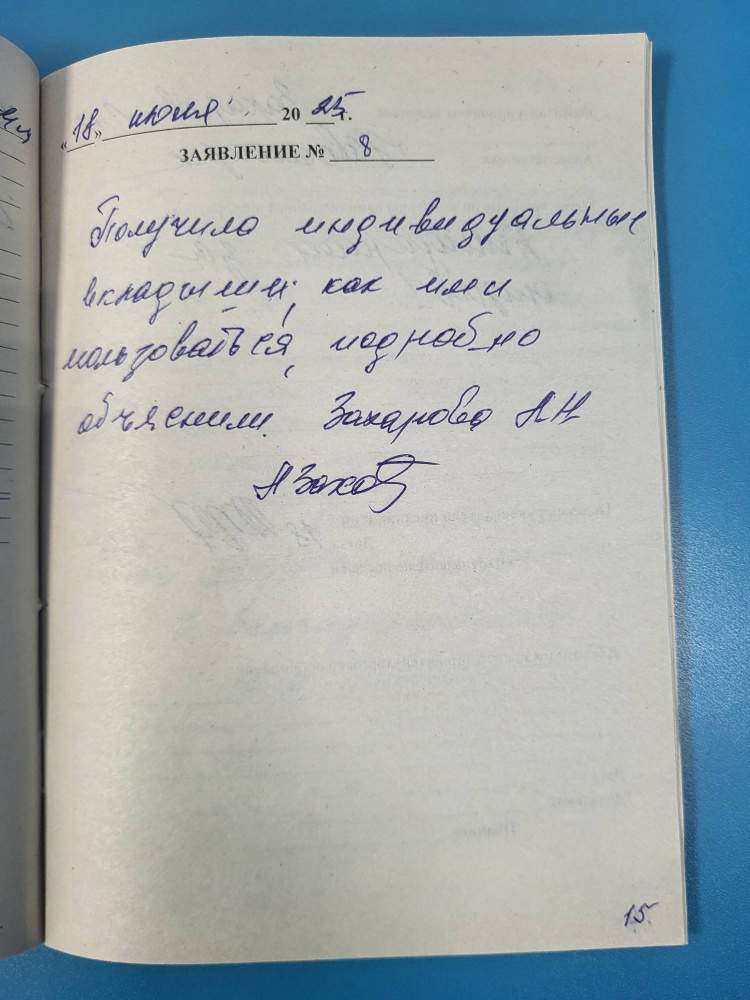 «18» июля 2025 г.
ЗАЯВЛЕНИЕ № 8
Получила индивидуальные
вкладыши, как ими
пользоваться, подробно
объяснили. Захарова
АЗахар
15.